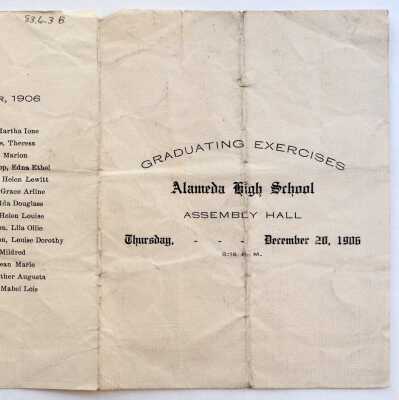 53.6.3 B
R, 1906
Martha Ione
Theresa
Marion
Edna Ethel
Helen Lewitt
Grace Arline
Ida Douglass
Helen Louise
Lila Ollie
Louise Dorothy
Mildred
Jean Marie
ther Augusta
Mabel Lois
GRADUATING EXERCISES
Alameda High School
ASSEMBLY HALL
Thursday, - - - December 20, 1906
8:15 P. M.